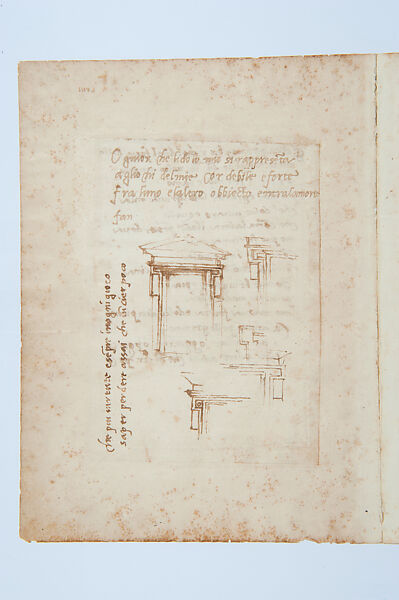 Ognior che lidolo mio si rappresēta
agliochi delmie cor debile eforte
fra luno elaltro obbiecto entralamorte
fan
che piu virtute essēpre inogni gioco
saper perdere assai che vīcier poco